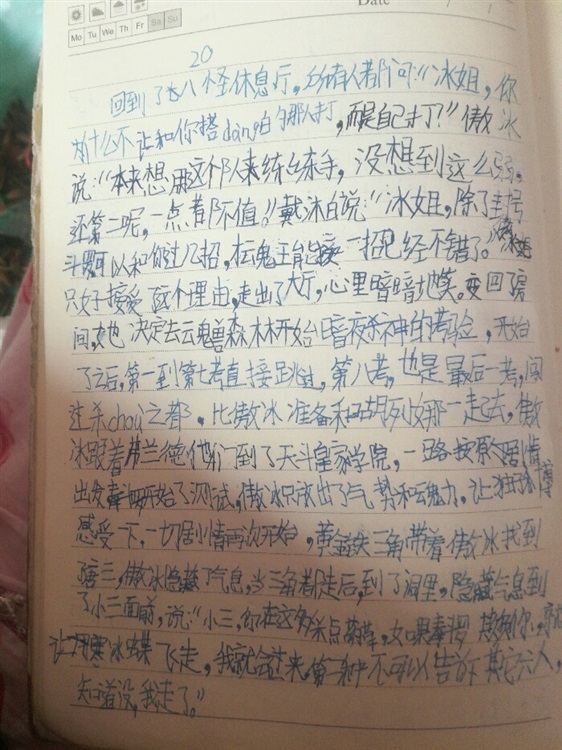 Date
Mo Tu We Th Fr Sa Su
20
回到了七八怪休息厅,所有人都问:"冰姐,你
为什么不让和你搭dang白勺那人打,而是自己打?"傲冰
说:"本来想用这个队来练练手,没想到这么弱,
还第二呢,一点都不值!"戴沐白说:"冰姐,除了封号
斗罗可以和你过几招,坛鬼王能接一招已经不错了。"
只好接受这个理由,走出了大厅,心里暗暗地笑。变回了房
间,她决定去云鬼兽森林开始暗夜杀神的考验,开始
了之后,第一到第七考直接跳过,第八考,也是最后一考,闯
过杀chou之都。比傲冰准备和胡列娜一起去,傲
冰跟着弗兰德他们到了天斗皇家学院,一路按原剧情
出发 开始了测试,傲冰只放出了气势和云鬼力,让独孤博
感受下,一切剧情再次开始,黄金铁三角带着傲冰找到
唐三,傲冰隐藏了气息,当三角都走后,到了洞里,隐藏气息到
了小三面前,说:"小三,你在这多采点药草,如果 你,
让 冰蝶飞走,我就会过来,第二 不可以告诉其它人,
知道没,我走了。"